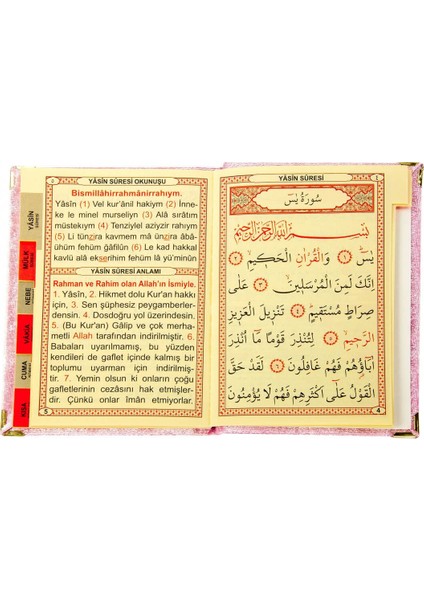 YÂSÎN SÛRESİ OKUNUŞU
Bismillâhirrahmânirrahıym.
Yâsîn (1) Vel kur'ânil hakiym (2) İnne-
ke le minel murseliyn (3) Alâ sırâtım
müstekıym (4) Tenziylel aziyzir rahıym
(5) Li tünzira kavmem mâ ünzira âbâ-
ühüm fehüm ğâfilûn (6) Le kad hakkal
kavlü alâ ekserihim fehüm lâ yü'minûn
YÂSÎN SÛRESİ ANLAMI
Rahman ve Rahim olan Allah'ın İsmiyle.
1. Yâsîn, 2. Hikmet dolu Kur'an hakkı
için, 3. Sen şüphesiz peygamberler-
densin. 4. Dosdoğru yol üzerindesin.
5. (Bu Kur'an) Gâlip ve çok merha-
metli Allah tarafından indirilmiştir. 6.
Babaları uyarılmamış, bu yüzden
kendileri de gaflet içinde kalmış bir
toplumu uyarman için indirilmiş-
tir. 7. Yemin olsun ki onların çoğu
gafletlerinin cezâsını hak etmişler-
dir. Çünkü onlar îman etmiyorlar.
5
YÂSÎN
MÜLK
NEBE
VAKIA
CUMA
KISA
YÂSÎN SÛRESİ
٤
سُورَةُ يٰسٓ
بِسْمِ اللّٰهِ الرَّحْمٰنِ الرَّحِيمِ
يٰسٓ ﴿١﴾ وَالْقُرْاٰنِ الْحَكِيمِ ﴿٢﴾
اِنَّكَ لَمِنَ الْمُرْسَلِينَ ﴿٣﴾ عَلٰى
صِرَاطٍ مُسْتَقِيمٍ ﴿٤﴾ تَنْزِيلَ الْعَزِيزِ
الرَّحِيمِ ﴿٥﴾ لِتُنْذِرَ قَوْمًا مَٓا اُنْذِرَ
اٰبَٓاؤُهُمْ فَهُمْ غَافِلُونَ ﴿٦﴾ لَقَدْ حَقَّ
الْقَوْلُ عَلٰٓى اَكْثَرِهِمْ فَهُمْ لَا يُؤْمِنُونَ
4